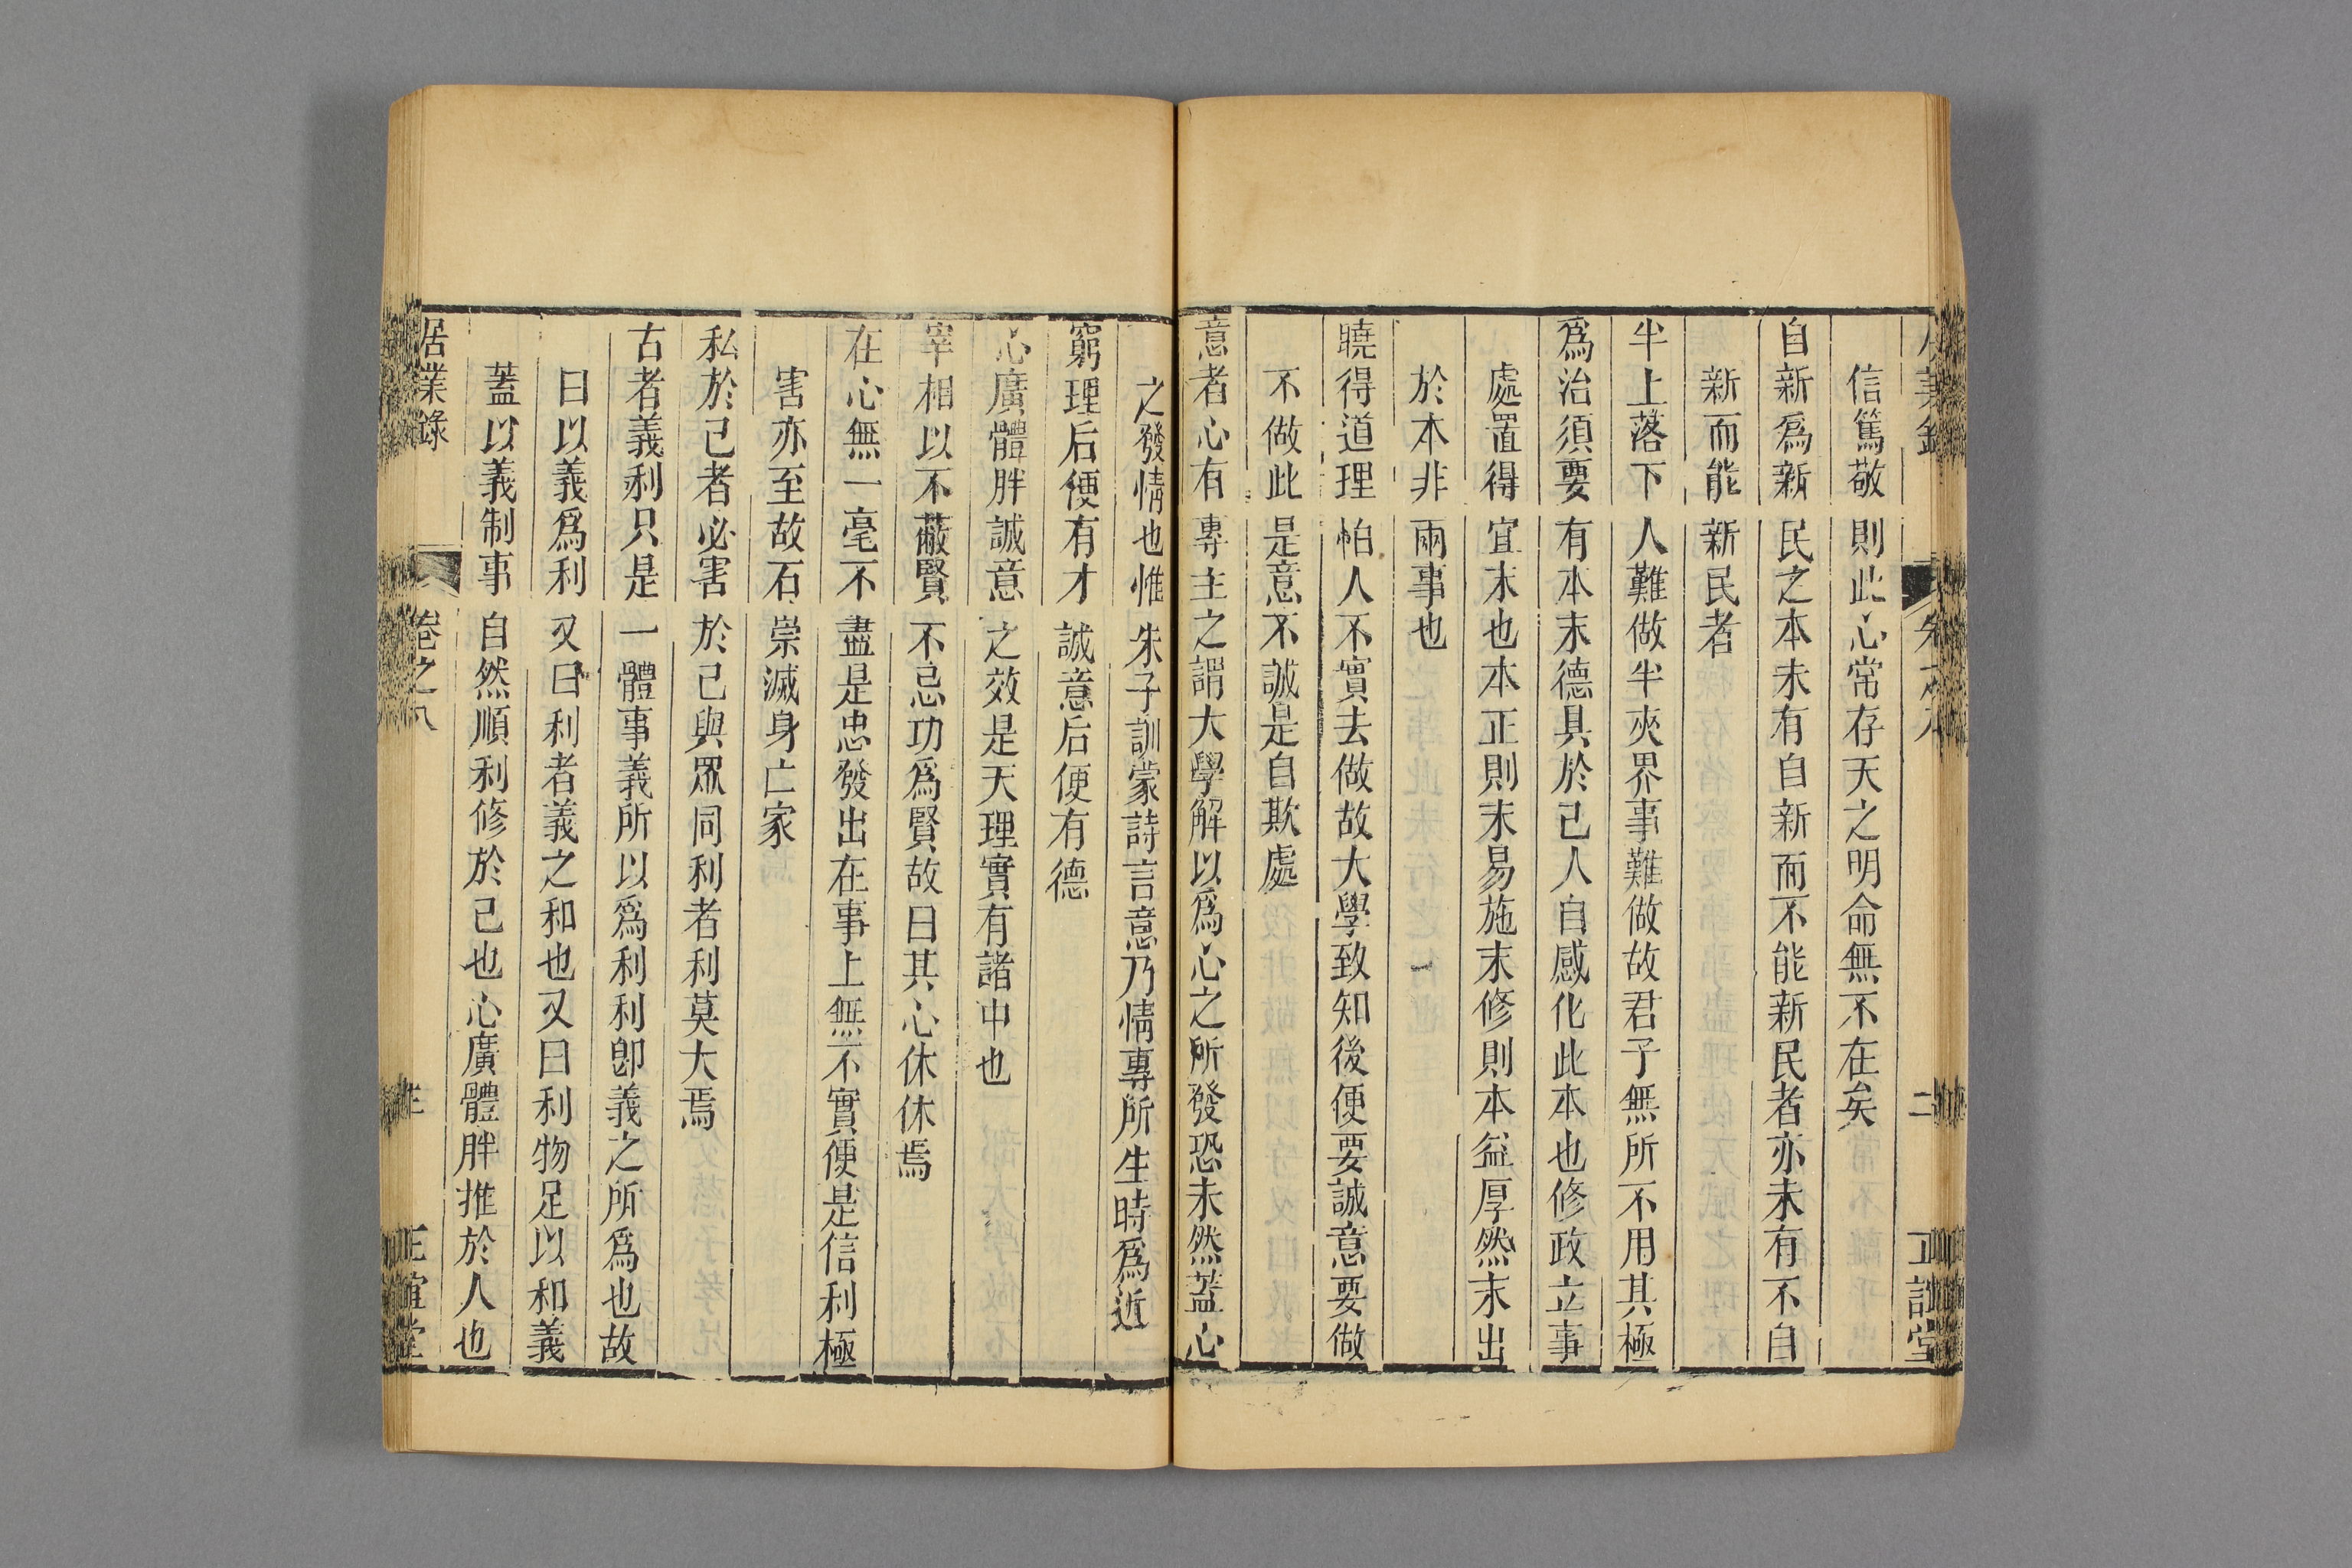 信篤敬則此心常存天之明命無不在矣
自新爲新民之本未有自新而不能新民者亦未有不自
新而能新民者
半上落下人難做半夾界事難做故君子無所不用其極
爲治須要有本末德具於己人自感化此本也修政立事
處置得宜末也本正則末易施末修則本益厚然末出
於本非兩事也
曉得道理怕人不實去做故大學致知後便要誠意要做
不做此是意不誠是自欺處
意者心有專主之謂大學解以爲心之所發恐未然蓋心
之發情也惟朱子訓蒙詩言意乃情專所生時爲近
窮理后便有才誠意后便有德
心廣體胖誠意之效是天理實有諸中也
宰相以不蔽賢不忌功爲賢故曰其心休休焉
在心無一毫不盡是忠發出在事上無不實便是信利極
害亦至故石崇滅身亡家
私於己者必害於己與眾同利者利莫大焉
古者義利只是一體事義所以爲利利卽義之所爲也故
曰以義爲利又曰利者義之和也又曰利物足以和義
蓋以義制事自然順利修於己也心廣體胖推於人也
居業錄 卷之八 正誼堂